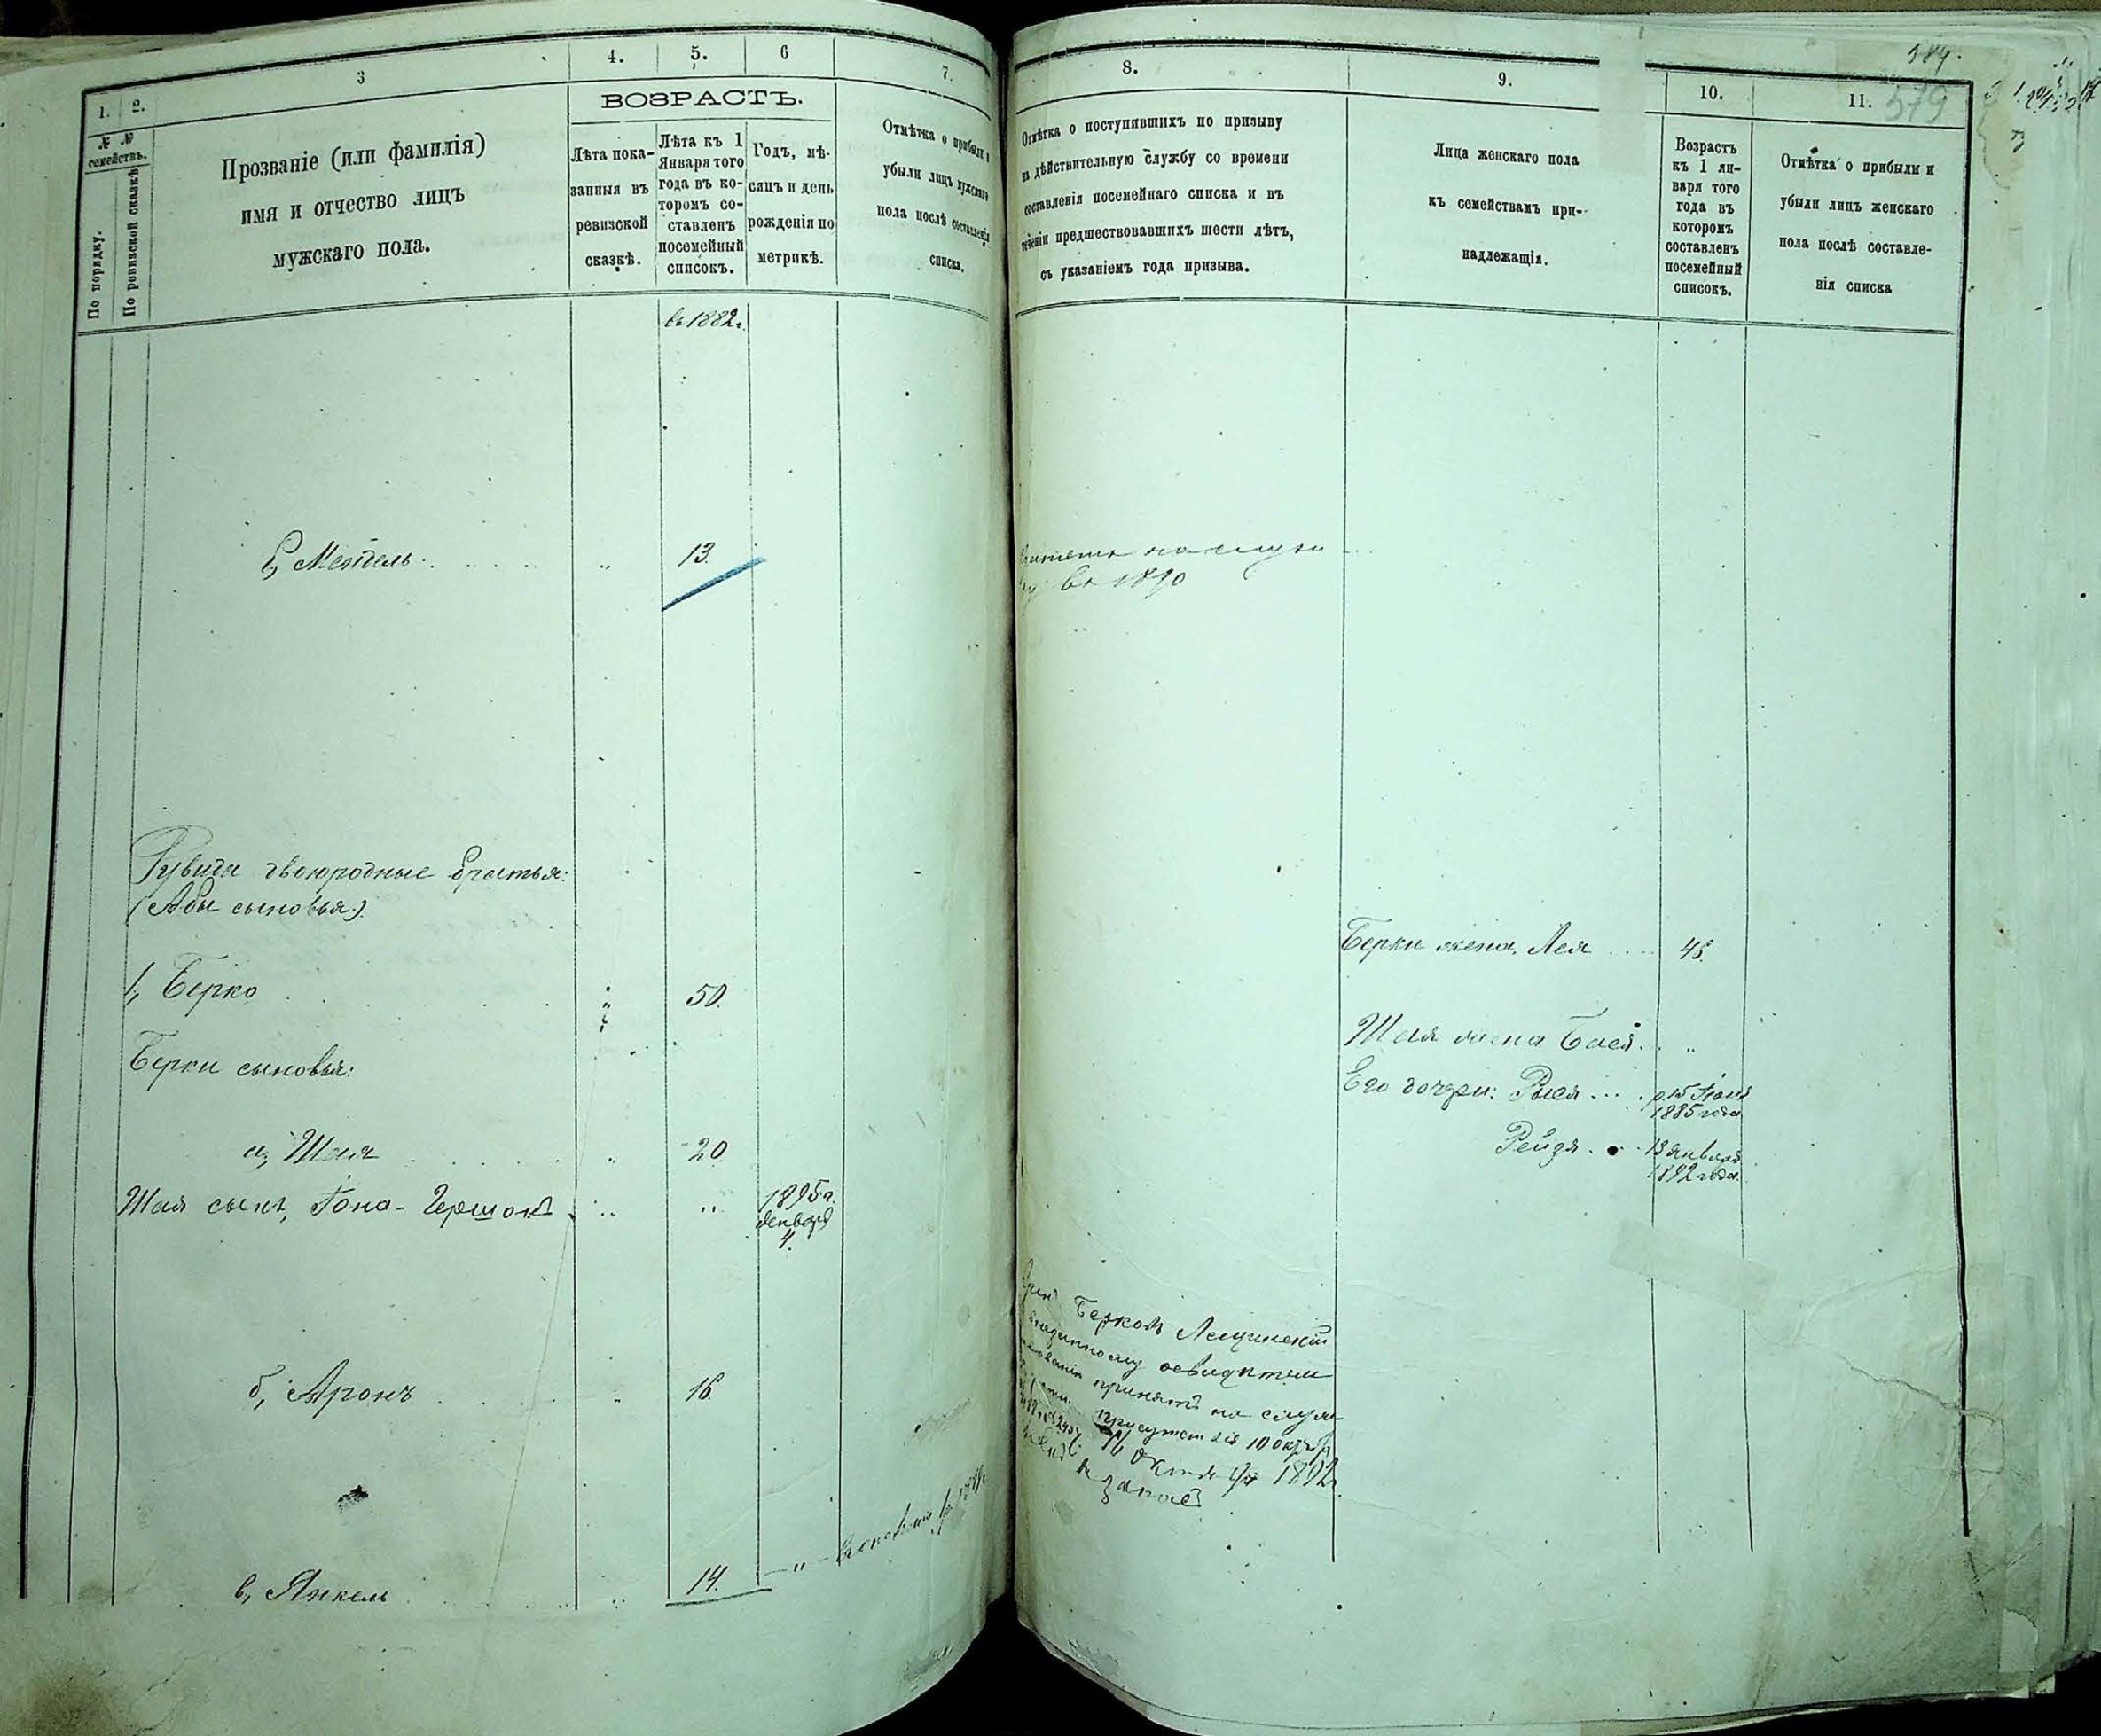 1.
2.
3
4.
5.
6
7.
№ №
семействъ.
По порядку.
По ревизской сказкѣ
Прозваніе (или фамилія)
имя и отчество лицъ
мужскаго пола.
ВОЗРАСТЪ.
Лѣта пока-
занныя въ
ревизской
сказкѣ.
Лѣта къ 1
Января того
года въ ко-
торомъ со-
ставленъ
посемейный
списокъ.
Годъ, мѣ-
сяцъ и день
рожденія по
метрикѣ.
Отмѣтка о прибыли и
убыли лицъ мужскаго
пола послѣ составленія
списка.
въ 1882г.
Мендель
13.
двоюродные братья:
(Абы сыновья)
1, Берко
50.
Берки сыновья:
а, Шая
20
Шая сынъ, Іона-Гершонъ
1895г.
января
4.
б, Аронъ
16.
в, Янкель
14.
8.
9.
10.
11.
584.
579
Отмѣтка о поступившихъ по призыву
на дѣйствительную службу со времени
составленія посемейнаго списка и въ
теченіи предшествовавшихъ шести лѣтъ,
съ указаніемъ года призыва.
Лица женскаго пола
къ семействамъ при-
надлежащія.
Возрастъ
къ 1 ян-
варя того
года въ
которомъ
составленъ
посемейный
списокъ.
Отмѣтка о прибыли и
убыли лицъ женскаго
пола послѣ составле-
нія списка
въ 1890
Берки жена, Лея
45.
Шая жена Бася
Его дочери: Рыся
р. 15 Іюня
1885 года
Рейзя
13 января
1892 года
Берковъ Лещинскій
освидѣтель
принятъ на служ
присутствія 10 октяб
16 октября 1892
въ запасъ